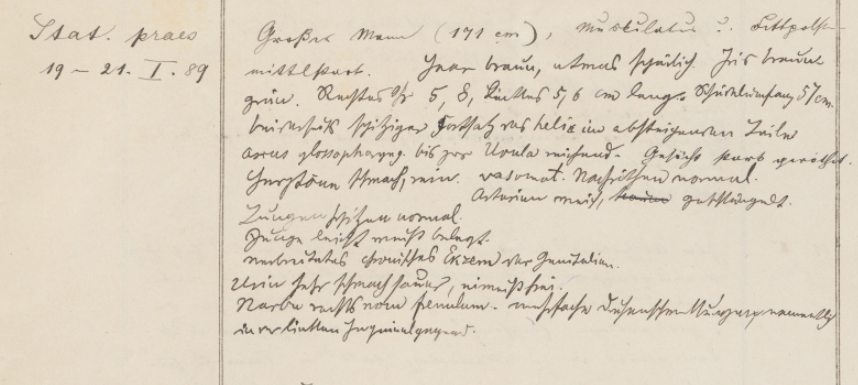 Stat. praes
19 – 21. I. 89
Großer Mann (171 cm), Muskulatur u. Fettpolster
mittelstark. Haar braun, etwas spärlich. Iris braun
grün. Rechtes Ohr 5,8, linkes 5,6 cm lang. Schädelumfang 57 cm.
beiderseits spitziger Fortsatz des helix im absteigenden Teile
arcus glossopharyng. bis zur Uvula reichend. Gesicht stark gerötet.
Herztöne schwach, rein. vasomot. Nachröthen normal.
Arterien weich, geschlängelt.
Lungenspitzen normal.
Zunge leicht weiß belegt.
verbreitetes chronisches Ekzem der Genitalien.
Urin sehr schwach sauer, eiweißfrei.
Narbe rechts vom frenulum. mehrfache Drüsenschwellungen namentlich
in der linken Inguinalgegend.